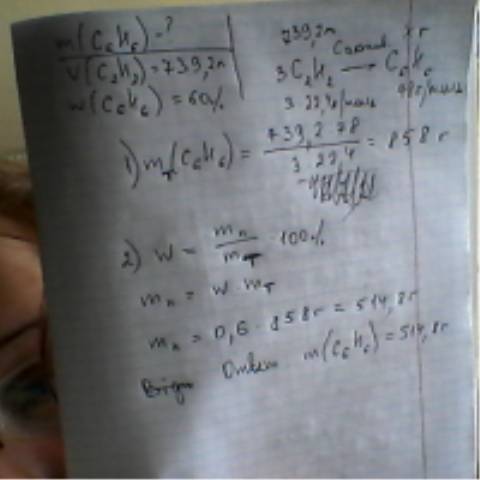 m(C6H6) - ?
V(C2H2) = 739,2л
w(C6H6) = 60%
739,2л   x г
3C2H2 → C6H6
3 22,4л/моль   78г/моль
1) mT(C6H6) = 739,2 78 / 3 22,4 = 858 г
2) W = mп / mT · 100%
mп = W mT
mп = 0,6 · 858г = 514,8г
Ответ m(C6H6) = 514,8г